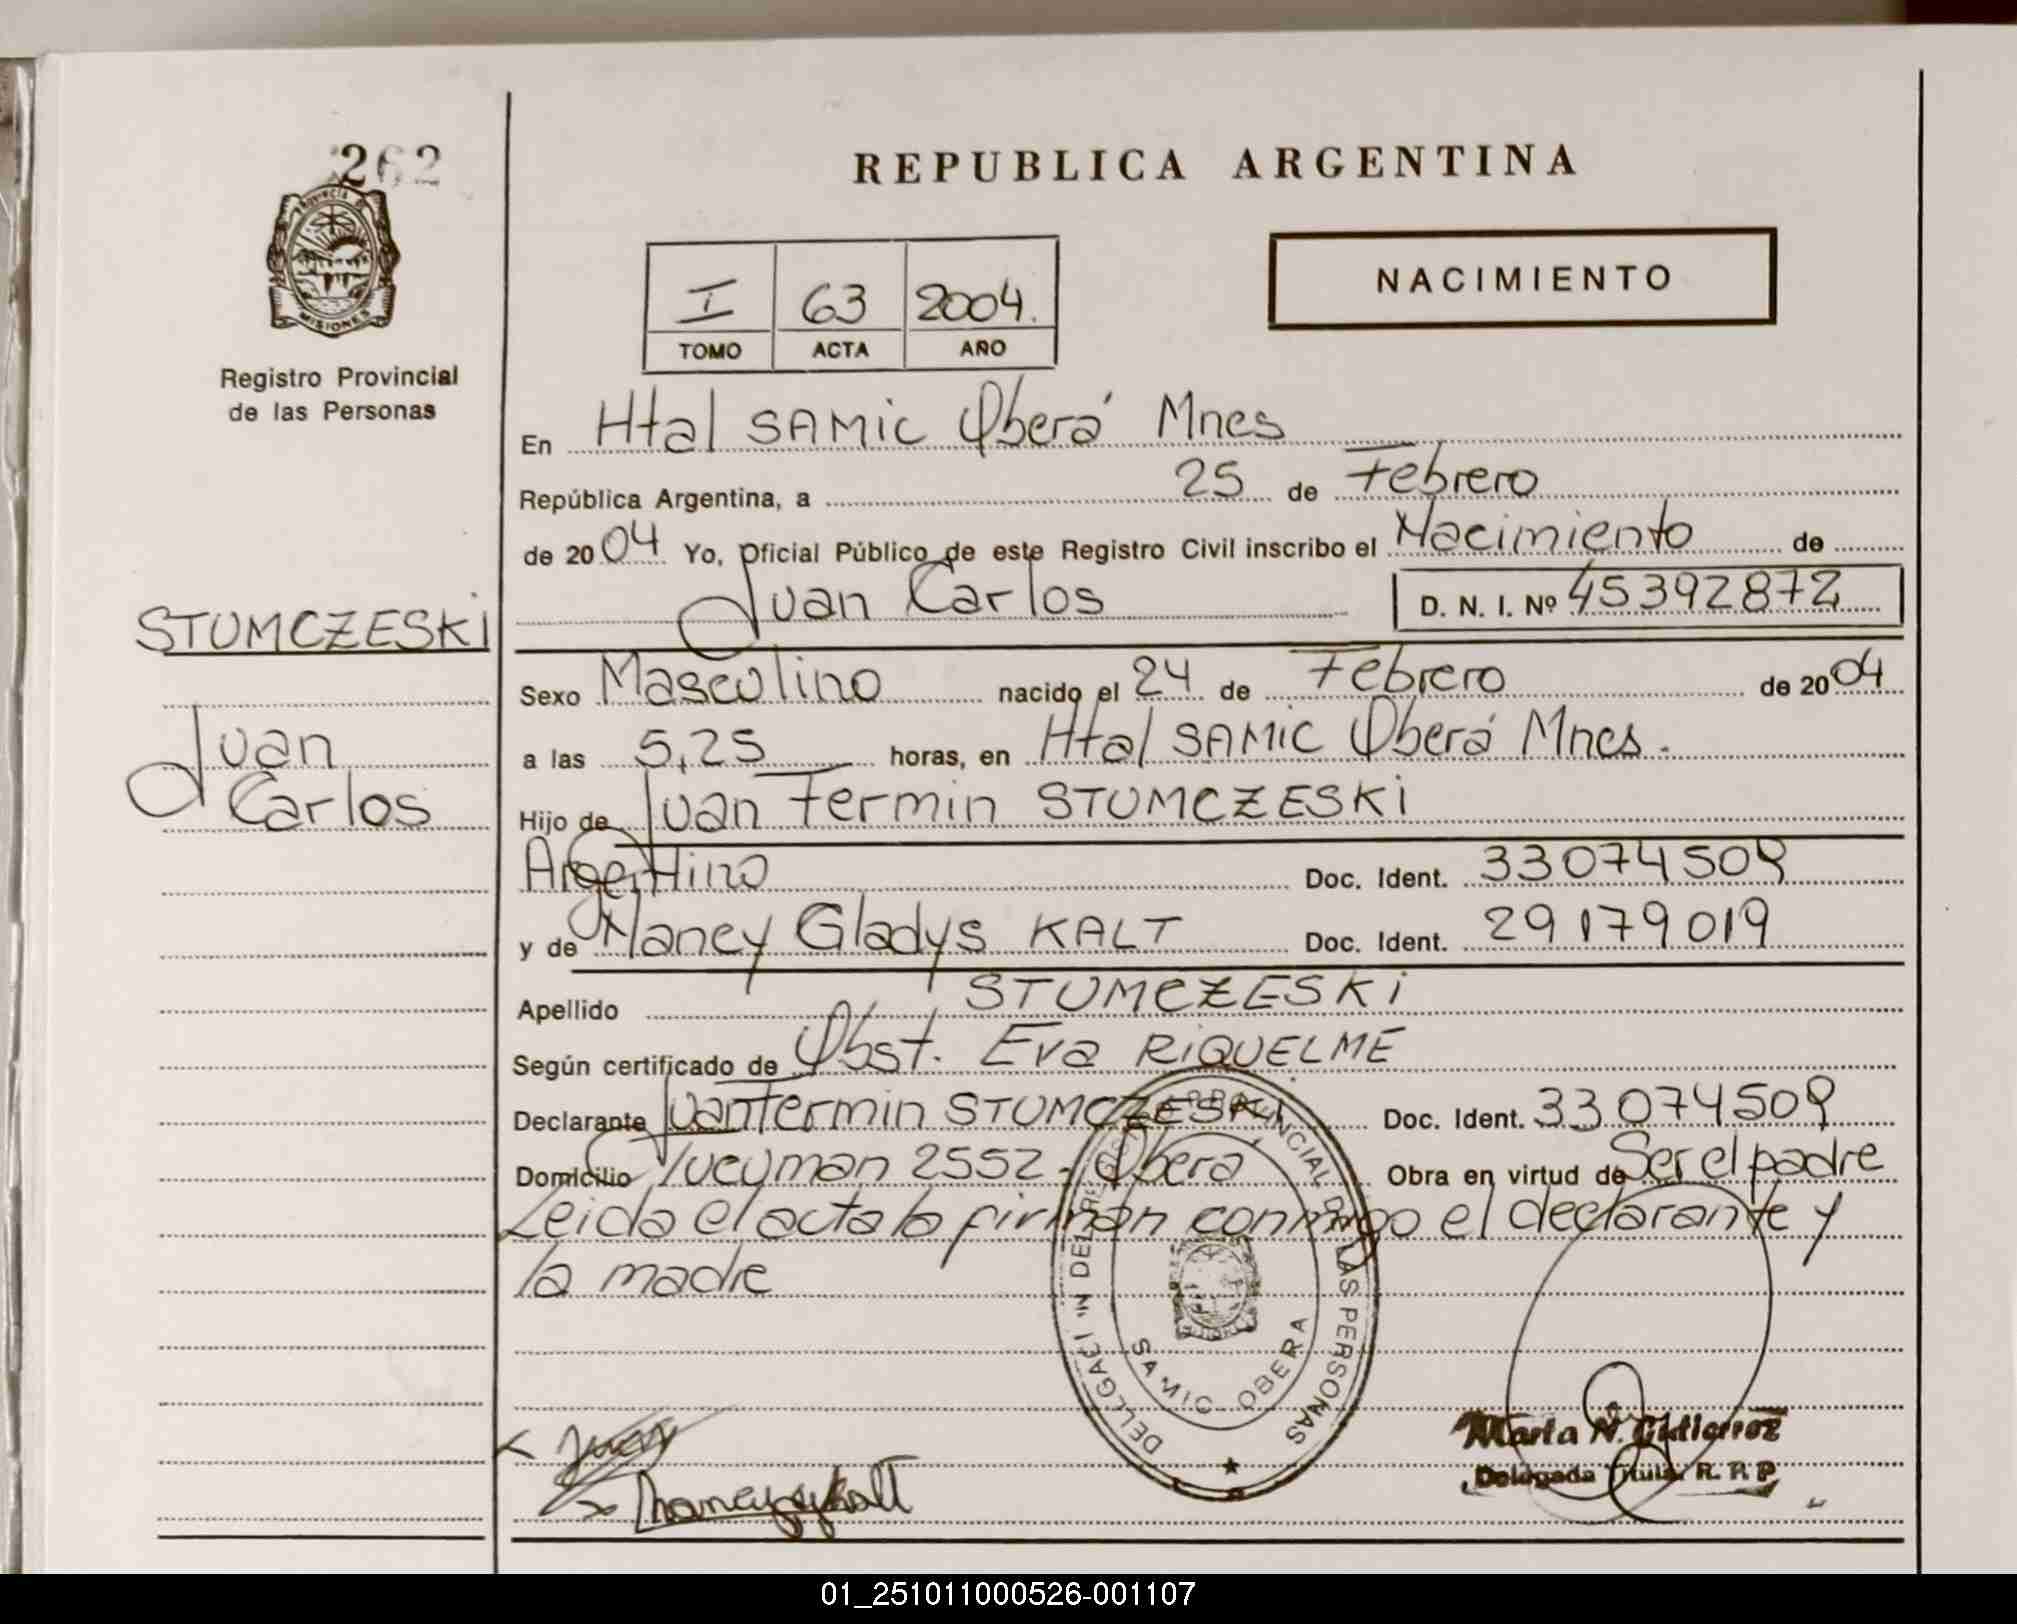 262
REPUBLICA ARGENTINA
NACIMIENTO
I 63 2004.
TOMO ACTA AÑO
MISIONES
Registro Provincial
de las Personas
En Htal SAMIC Oberá Mnes
República Argentina, a 25 de Febrero
de 2004 Yo, Oficial Público de este Registro Civil inscribo el Nacimiento de
Juan Carlos D. N. I. Nº 45392872
STUMCZESKI
Juan
Carlos
Sexo Masculino nacido el 24 de Febrero de 2004
a las 5,25 horas, en Htal SAMIC Oberá Mnes.
Hijo de Juan Fermin STUMCZESKI
Argentino Doc. Ident. 33074509
y de Nancy Gladys KALT Doc. Ident. 29179019
Apellido STUMCZESKI
Según certificado de Obst. Eva RIQUELME
Declarante Juan Fermin STUMCZESKI Doc. Ident. 33074509
Domicilio Tucuman 2552 - Obera Obra en virtud de Ser el padre
Leida el acta la firman conmigo el declarante y
la madre
DELEGACI "N DEL REGISTRO PROVINCIAL DE LAS PERSONAS
SAMIC OBERA
Juan
Nancy g kalt
Marta N. Gutierrez
Delegada Titular R. P. P.
01_251011000526-001107